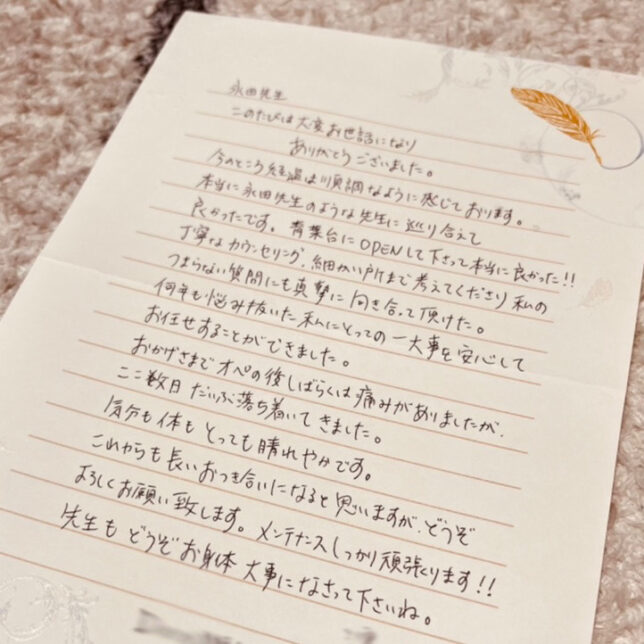 永田先生
このたびは大変お世話になり
ありがとうございました。
今のところ経過は順調なように感じております。
本当に永田先生のような先生に巡り合えて
良かったです。青葉台にOPENして下さって本当に良かった!!
丁寧なカウンセリング、細かい所まで考えてくださり私の
つまらない質問にも真摯に向き合って頂けた。
何年も悩み抜いた私にとっての一大事を安心して
お任せすることができました。
おかげさまでオペの後しばらくは痛みがありましたが、
ここ数日だいぶ落ち着いてきました。
気分も体もとっても晴れやかです。
これからも長いおつき合いになると思いますが、どうぞ
よろしくお願い致します。メンテナンスしっかり頑張ります!!
先生もどうぞお身体大事になさって下さいね。